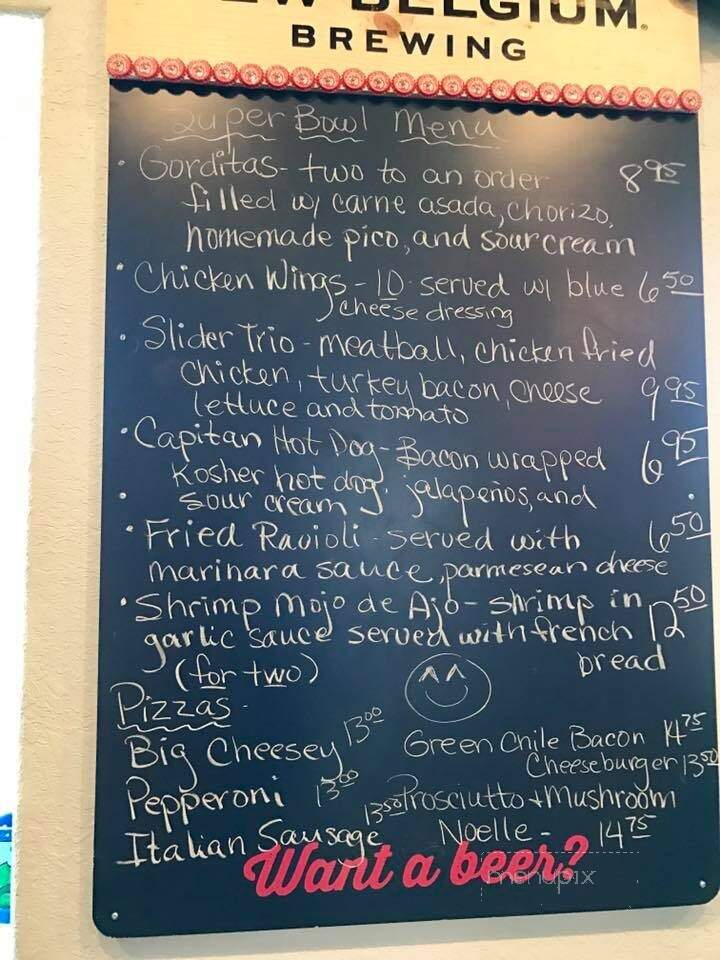 NEW BELGIUM®
BREWING
Super Bowl Menu
• Gorditas- two to an order 8 95
filled w/ carne asada, chorizo,
homemade pico, and sour cream
• Chicken Wings - 10 served w/ blue 6 50
cheese dressing
• Slider Trio - meatball, chicken fried
chicken, turkey bacon, cheese 9 95
lettuce and tomato
• Capitan Hot Dog- Bacon wrapped 6 95
Kosher hot dog, jalapeños, and
sour cream
• Fried Ravioli - served with 6 50
marinara sauce, parmesean cheese
• Shrimp Mojo de Ajo- shrimp in 12 50
garlic sauce served with french
(for two) bread
Pizzas -
Big Cheesey 13 00 Green Chile Bacon 14 75
Cheeseburger 13 50
Pepperoni 13 00 Prosciutto + Mushroom
13 50
Italian Sausage Noelle - 14 75
Want a beer?
menupix